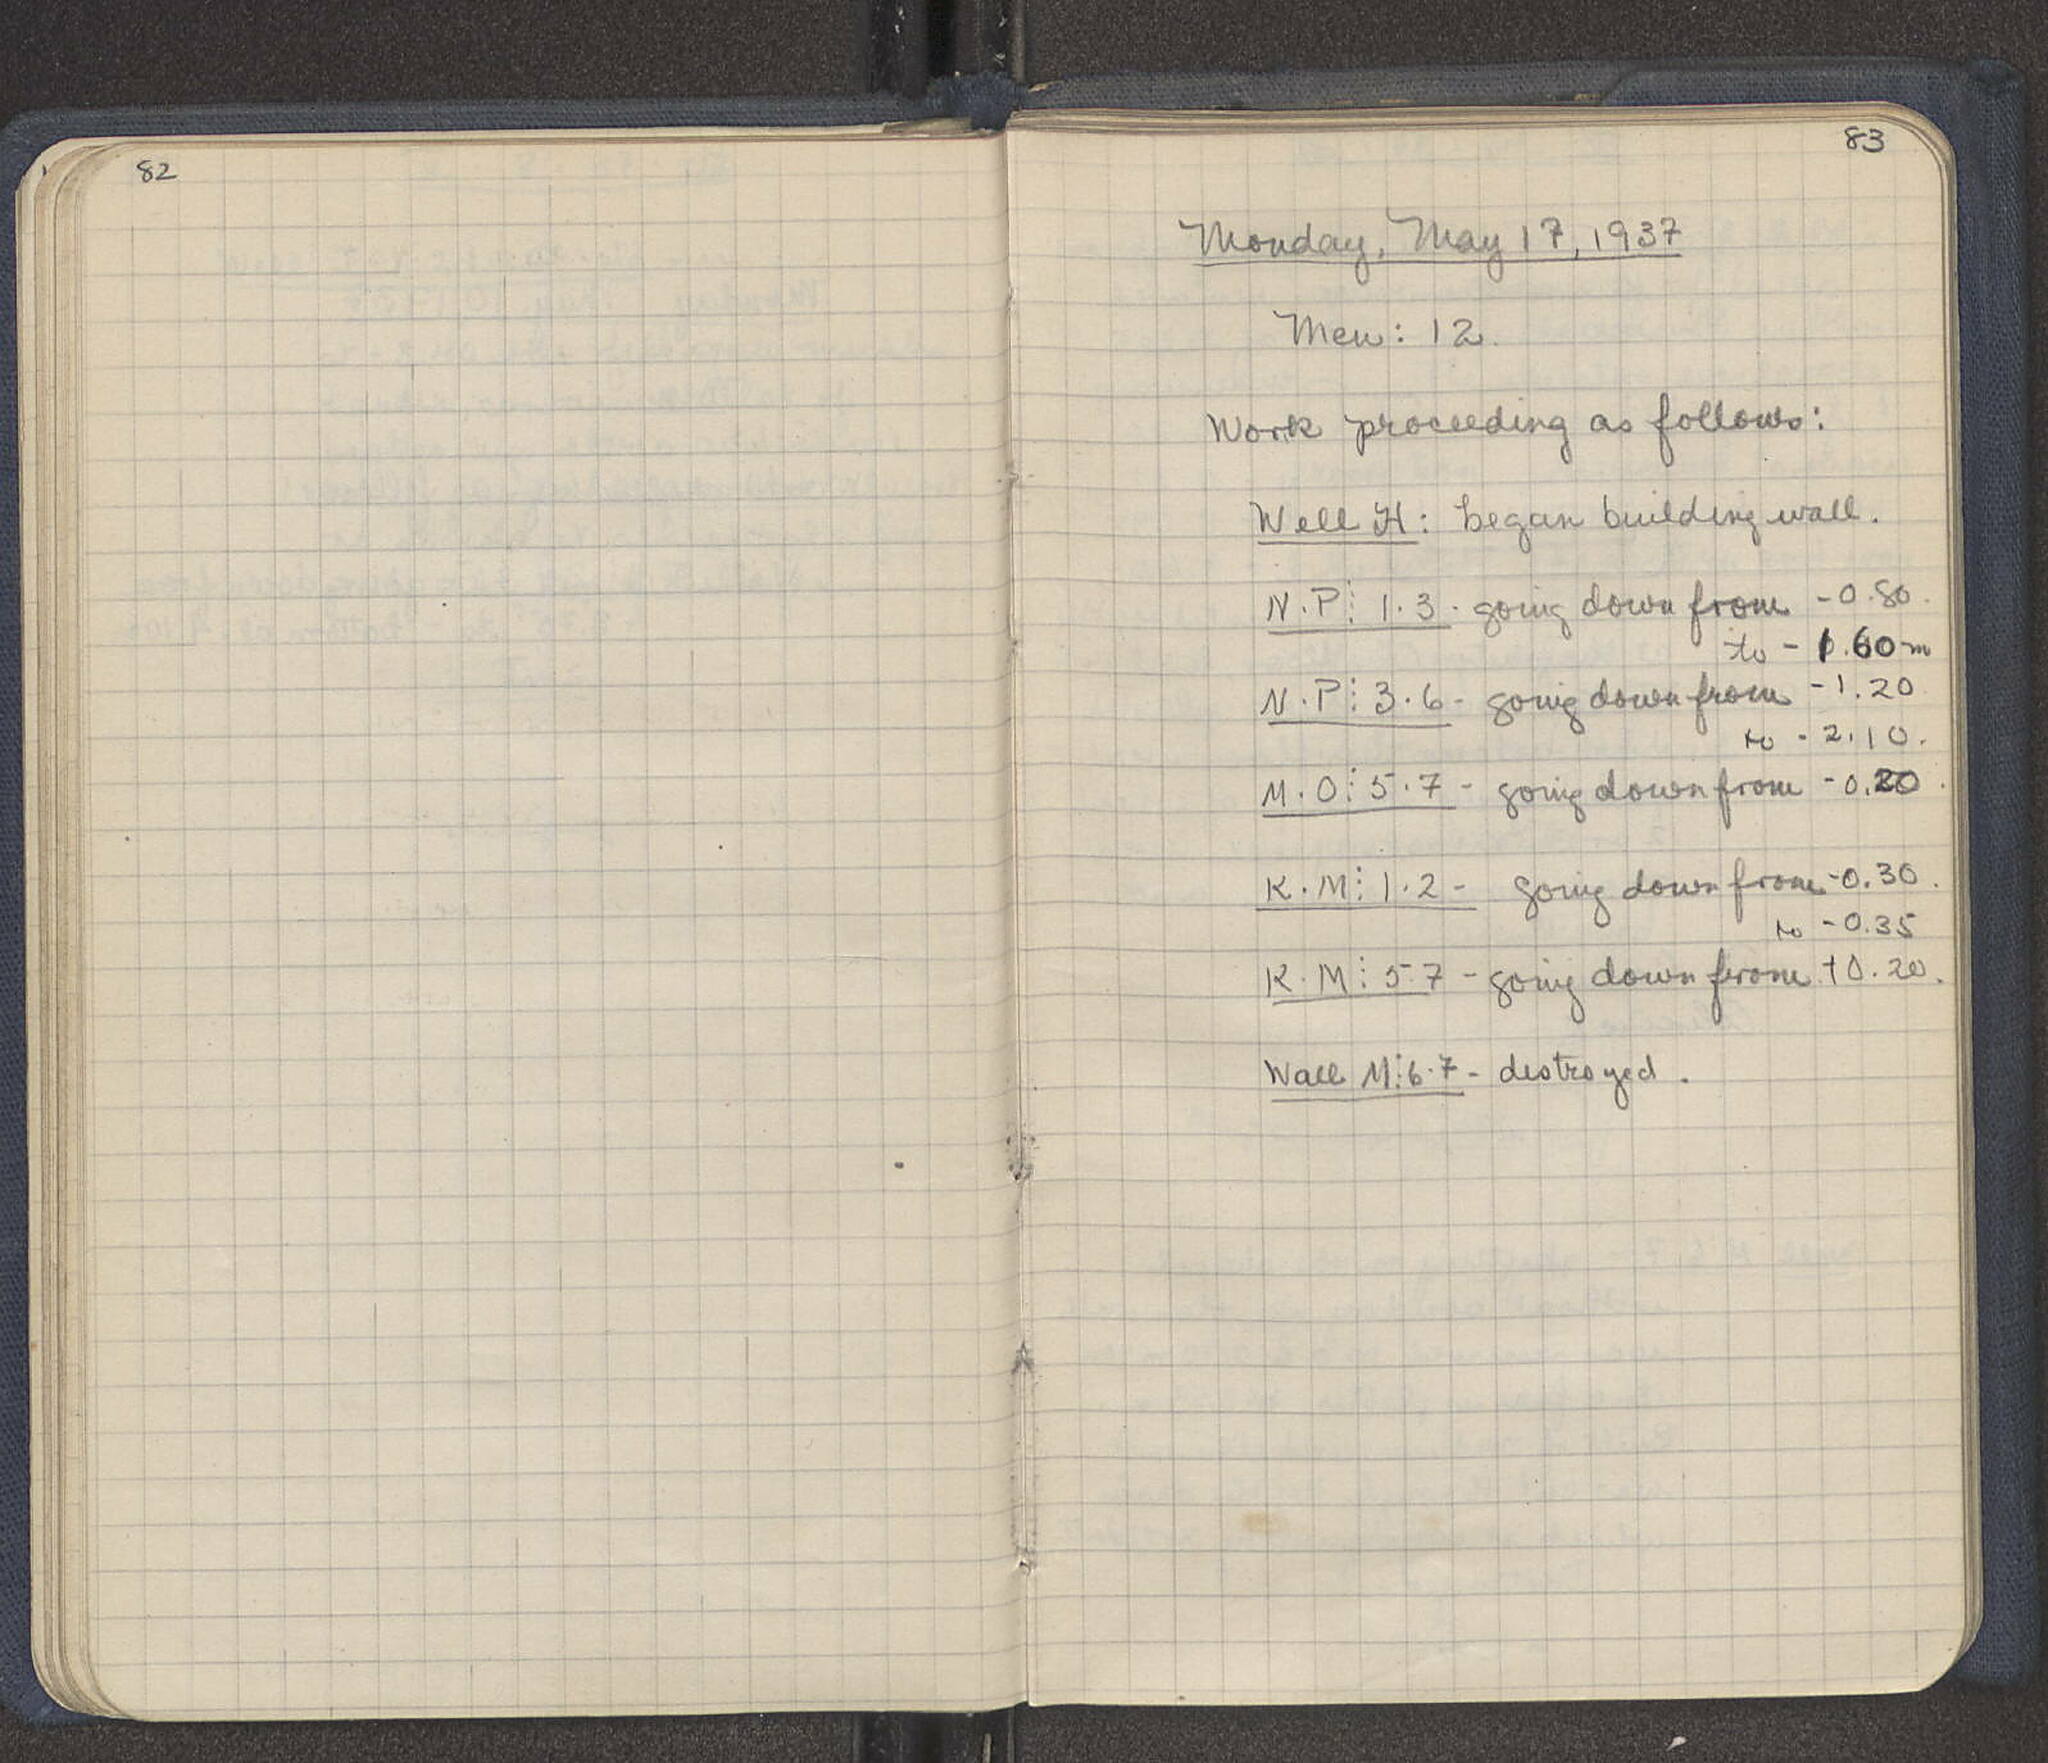 82
83
Monday, May 17, 1937
Men: 12.
Work proceeding as follows:
Well H: began building wall.
N.P⋮ 1.3 - going down from -0.80.
to -1.60 m
N.P⋮ 3.6 - going down from -1.20
to -2.10.
M.O⋮ 5.7 - going down from -0.20.
K.M⋮ 1.2 - going down from -0.30.
to -0.35
K.M⋮ 5.7 - going down from +0.20.
Wall M⋮6.7 - destroyed.